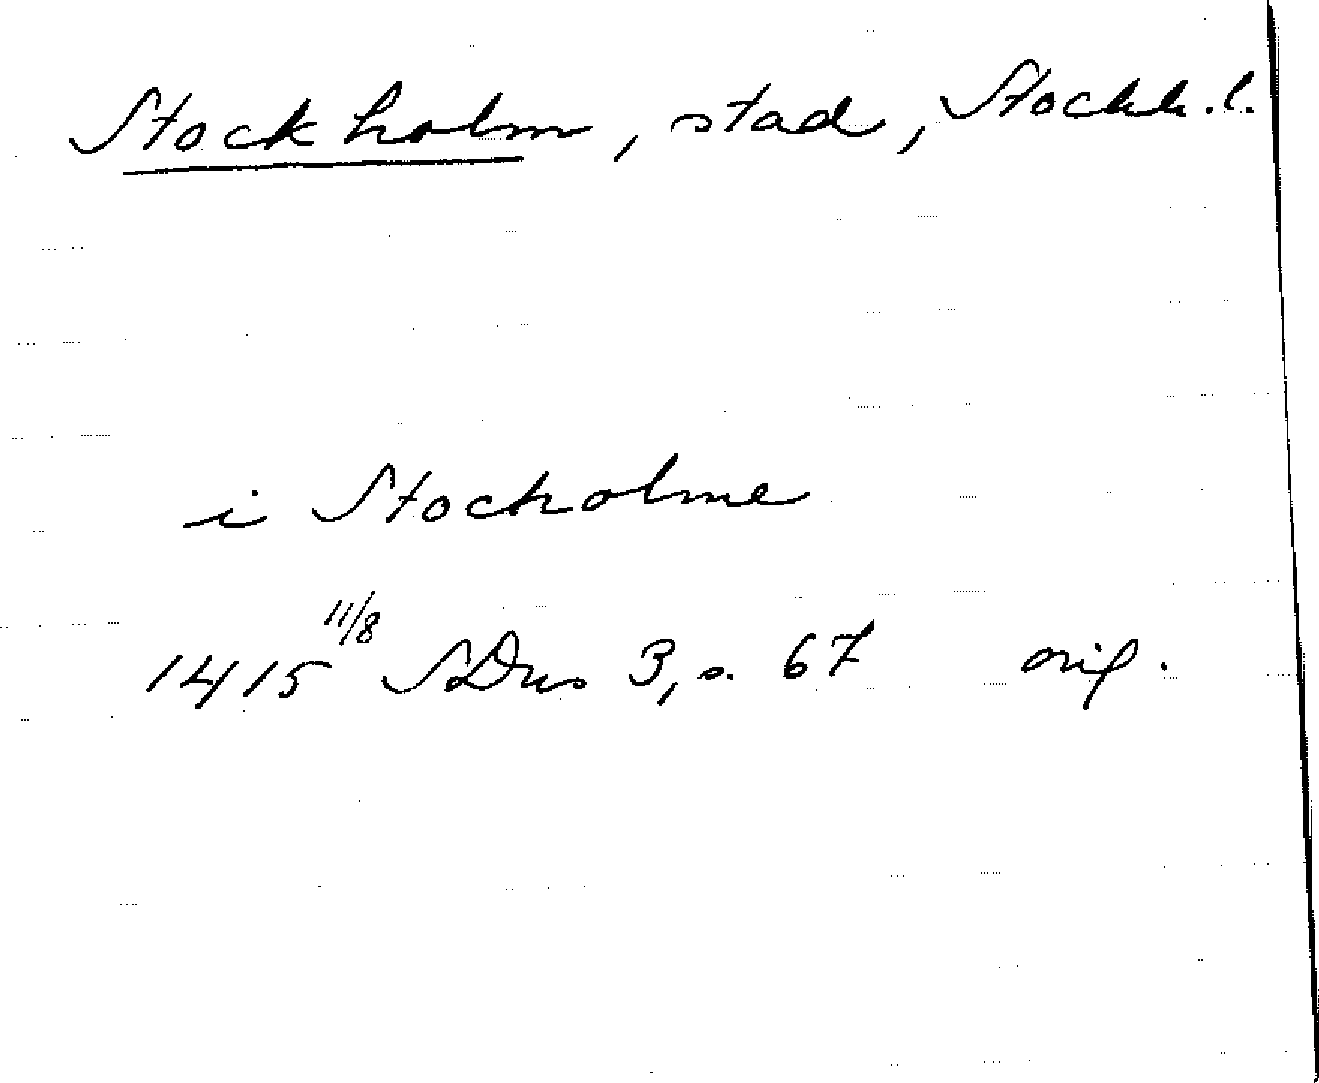 Stockholm, stad, Stockh. l.
i Stocholme
1415 11/8 SDns 3, s. 67 orig.